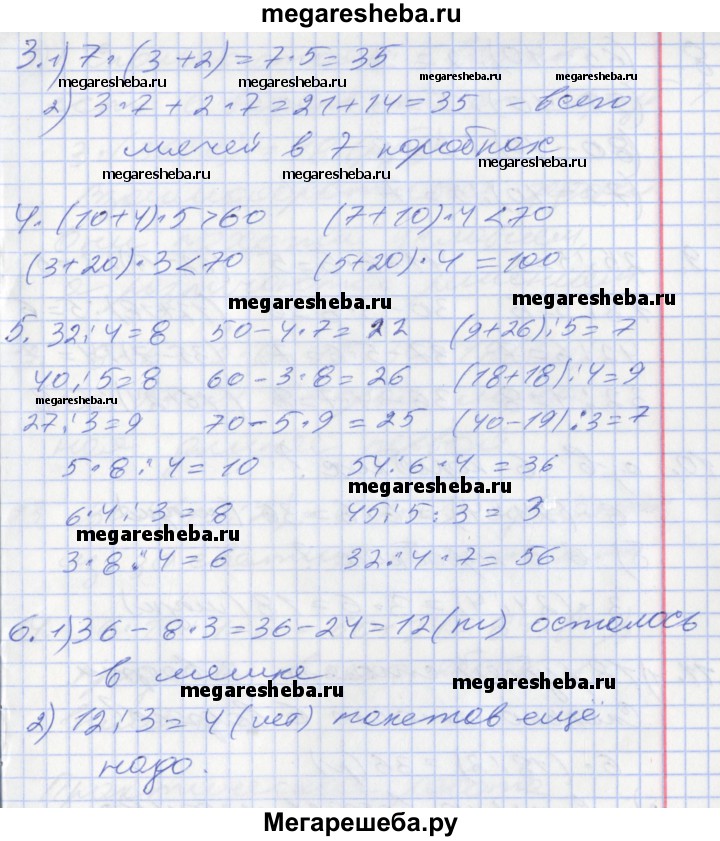 megaresheba.ru
3. 1) 7 · (3 + 2) = 7 · 5 = 35
megaresheba.ru megaresheba.ru megaresheba.ru
2) 3 · 7 + 2 · 7 = 21 + 14 = 35 - всего
мячей в 7 коробках
megaresheba.ru megaresheba.ru megaresheba.ru
4. (10+4) · 5 > 60 (7+10) · 4 < 70
(3+20) · 3 < 70 (5+20) · 4 = 100
megaresheba.ru megaresheba.ru
5. 32 : 4 = 8 50 - 4 · 7 = 22 (9+26) : 5 = 7
40 : 5 = 8 60 - 3 · 8 = 26 (18+18) : 4 = 9
megaresheba.ru
27 : 3 = 9 70 - 5 · 9 = 25 (40-19) : 3 = 7
5 · 8 : 4 = 10 54 : 6 · 4 = 36
megaresheba.ru
6 · 4 : 3 = 8 45 : 5 : 3 = 3
megaresheba.ru
3 · 8 : 4 = 6 32 : 4 · 7 = 56
6. 1) 36 - 8 · 3 = 36 - 24 = 12 (м) осталось
в мешке
megaresheba.ru megaresheba.ru
2) 12 : 3 = 4 (шт) пакетов ещё
надо.
Мегарешеба.ру